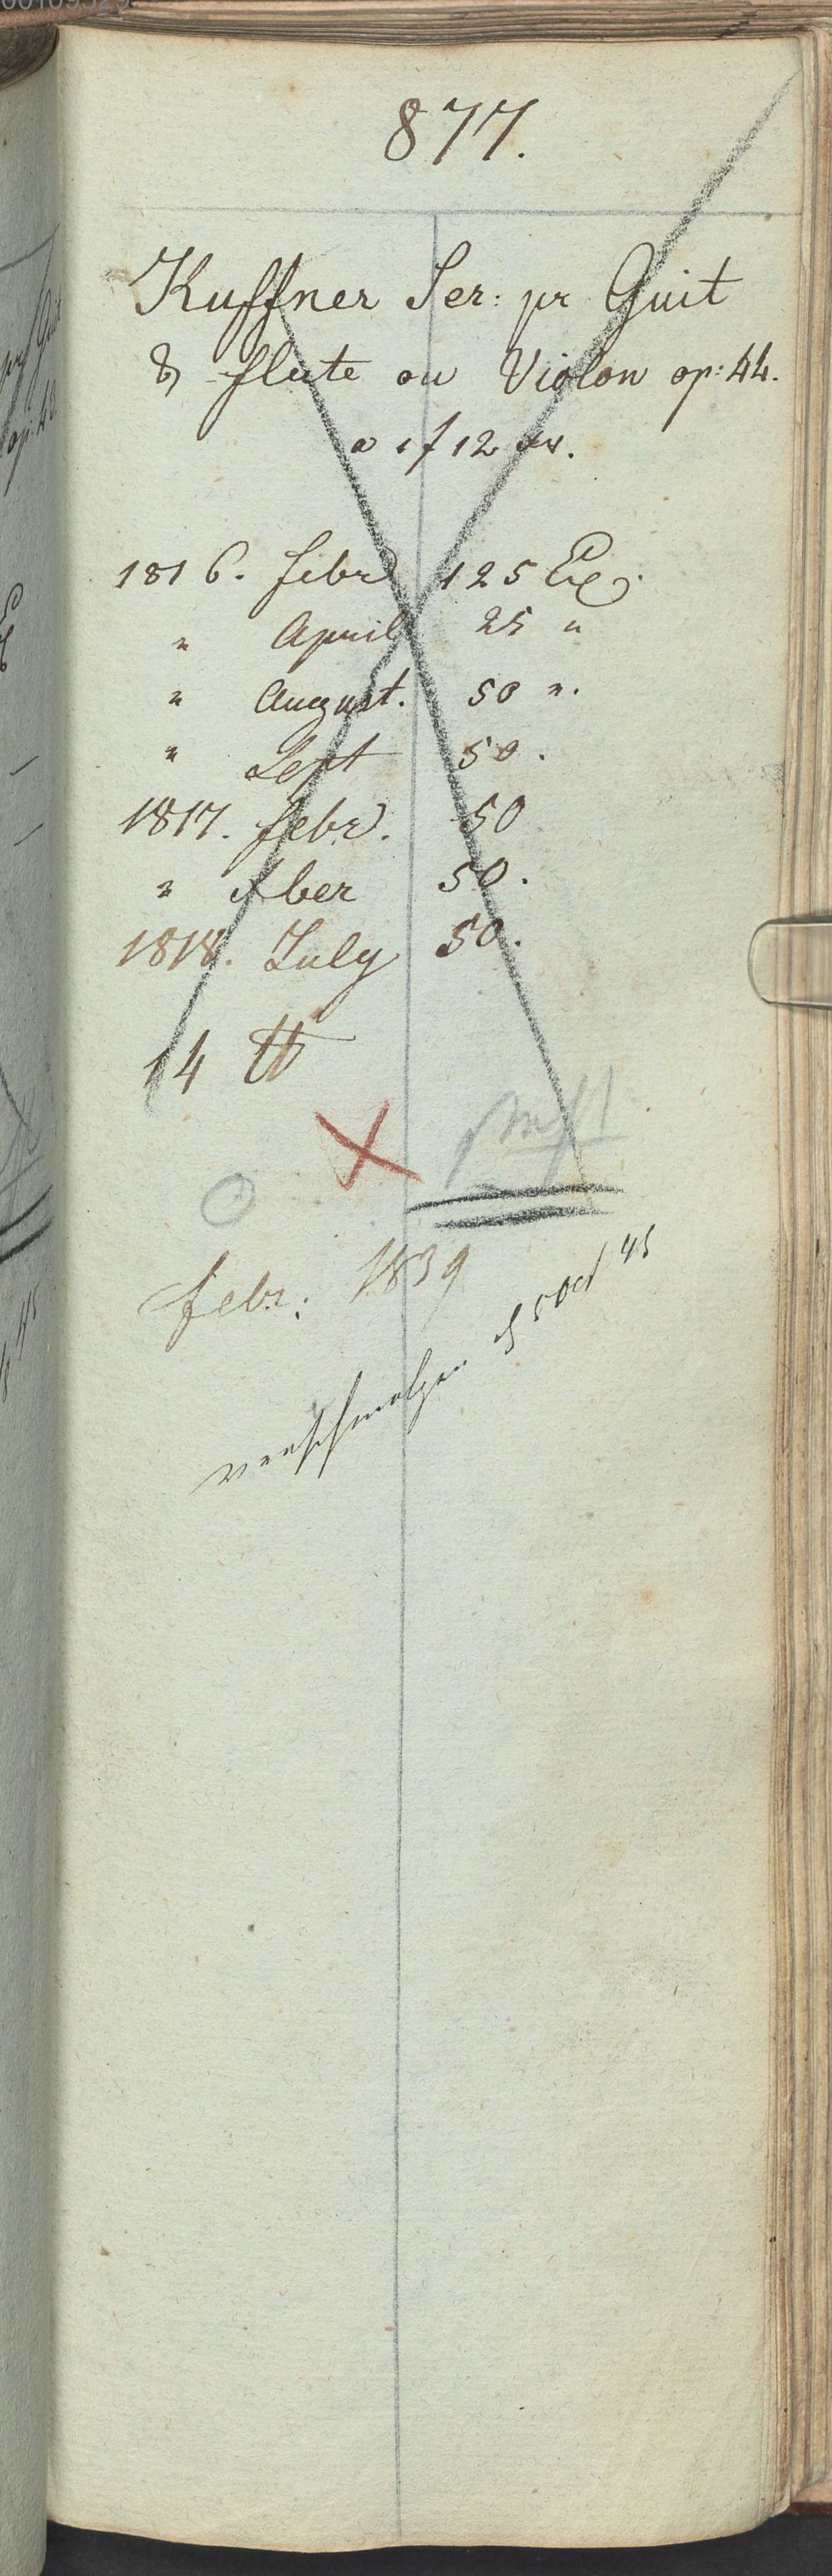 877.
Kuffner Ser: pr Guit
& flute ou Violon op: 44.
a 1 f 12 xr.
1816. febr 125 Ex.
" April 25 "
" August. 50 ".
" Sept 50.
1817. febr. 50
" ber 50.
1818. July 50.
14 ℔
febr: 1839
verschmolzen d 5 Oct 45